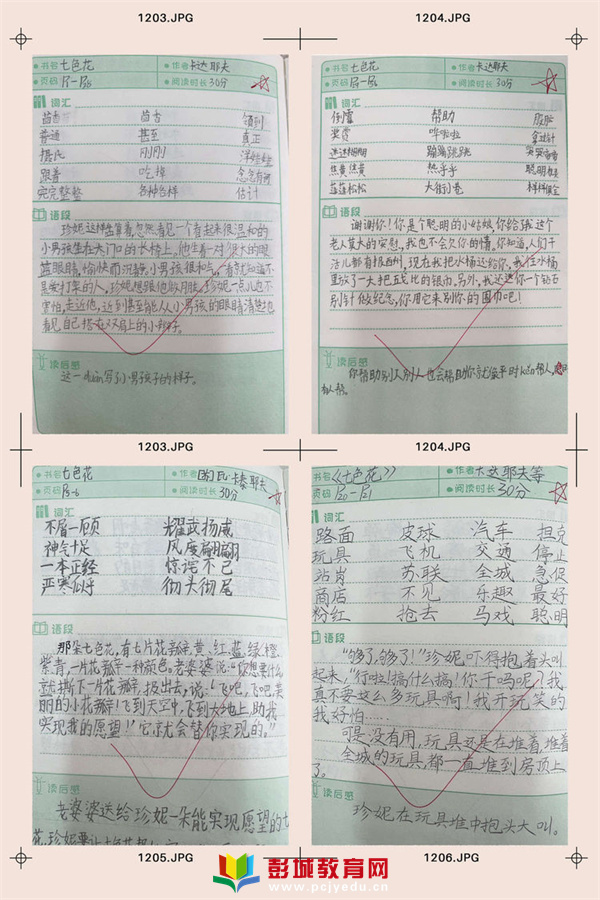 1203.JPG
1204.JPG
书名 七色花 作者 卡达耶夫
页码 阅读时长 30分
词汇
茴香 茴香 领到
普通 甚至 真正
跟着 吃掉 念念有词
完完整整 各种各样 估计
语段
珍妮这样盘算着,忽然看见一个看起来很温和的
小男孩坐在大门口的长椅上。他生着一对很大的眼
蓝眼睛,愉快而沉静,小男孩很和气,一看就知道不
是爱打架的人,珍妮想跟他
害怕,走近他,近到甚至能从小男孩的眼睛清楚地
看见自己搭在双肩上的小辫子。
读后感
这一duàn写了小男孩子的样子。
书名 七色花 作者 卡达耶夫
页码 阅读时长 30分
词汇
帮助 服脏
哗啦啦
蹦蹦跳跳
热乎乎 聪明
大街小巷
语段
谢谢你!你是个聪明的小姑娘,你给我这个
老人莫大的安慰,我也不会欠你的情,你知道,人们干
活儿都有报酬,现在我把水杨还给你,我往水杨
里放了一大把五戈比的银币,另外,我还送你一个钻石
别针做纪念,你用它来别你的围巾吧!
读后感
你帮助别人别人也会帮助你
1203.JPG
1204.JPG
书名 七色花 作者 卡泰耶夫
页码 阅读时长 30分
词汇
不屑一顾 耀武扬威
神气十足 风度翩翩
一本正经 惊诧不已
严寒似乎 彻头彻尾
语段
那朵七色花,有七片花瓣,黄、红、蓝、绿、橙、
紫、青,一片花瓣一种颜色。老婆婆说:“你想要什么,
就撕下一片花瓣,扔出去,说:‘飞吧,飞吧,美
丽的小花瓣!飞到天空中,飞到大地上,助我
实现我的愿望!’它就会替你实现的。”
读后感
老婆婆送给珍妮一朵能实现愿望的七
书名 《七色花》 作者 卡达耶夫等
页码 阅读时长 30分
词汇
路面 皮球 汽车 坦克
玩具 飞机 交通 停止
站岗 苏联 全城 急促
商店 不见 乐趣 最好
粉红 抢去 马戏 聪明
语段
“够了,够了!”珍妮吓得抱着头叫
起来,“行啦!搞什么搞!你干吗呢?我
真不要这么多玩具啊!我开玩笑的
我好怕……
可是没有用,玩具还是在堆着,堆着
全城的玩具,都一直堆到房顶上
了。
读后感
珍妮在玩具堆中抱头大叫。
1205.JPG
1206.JPG
彭城教育网
www.pcjyedu.cn